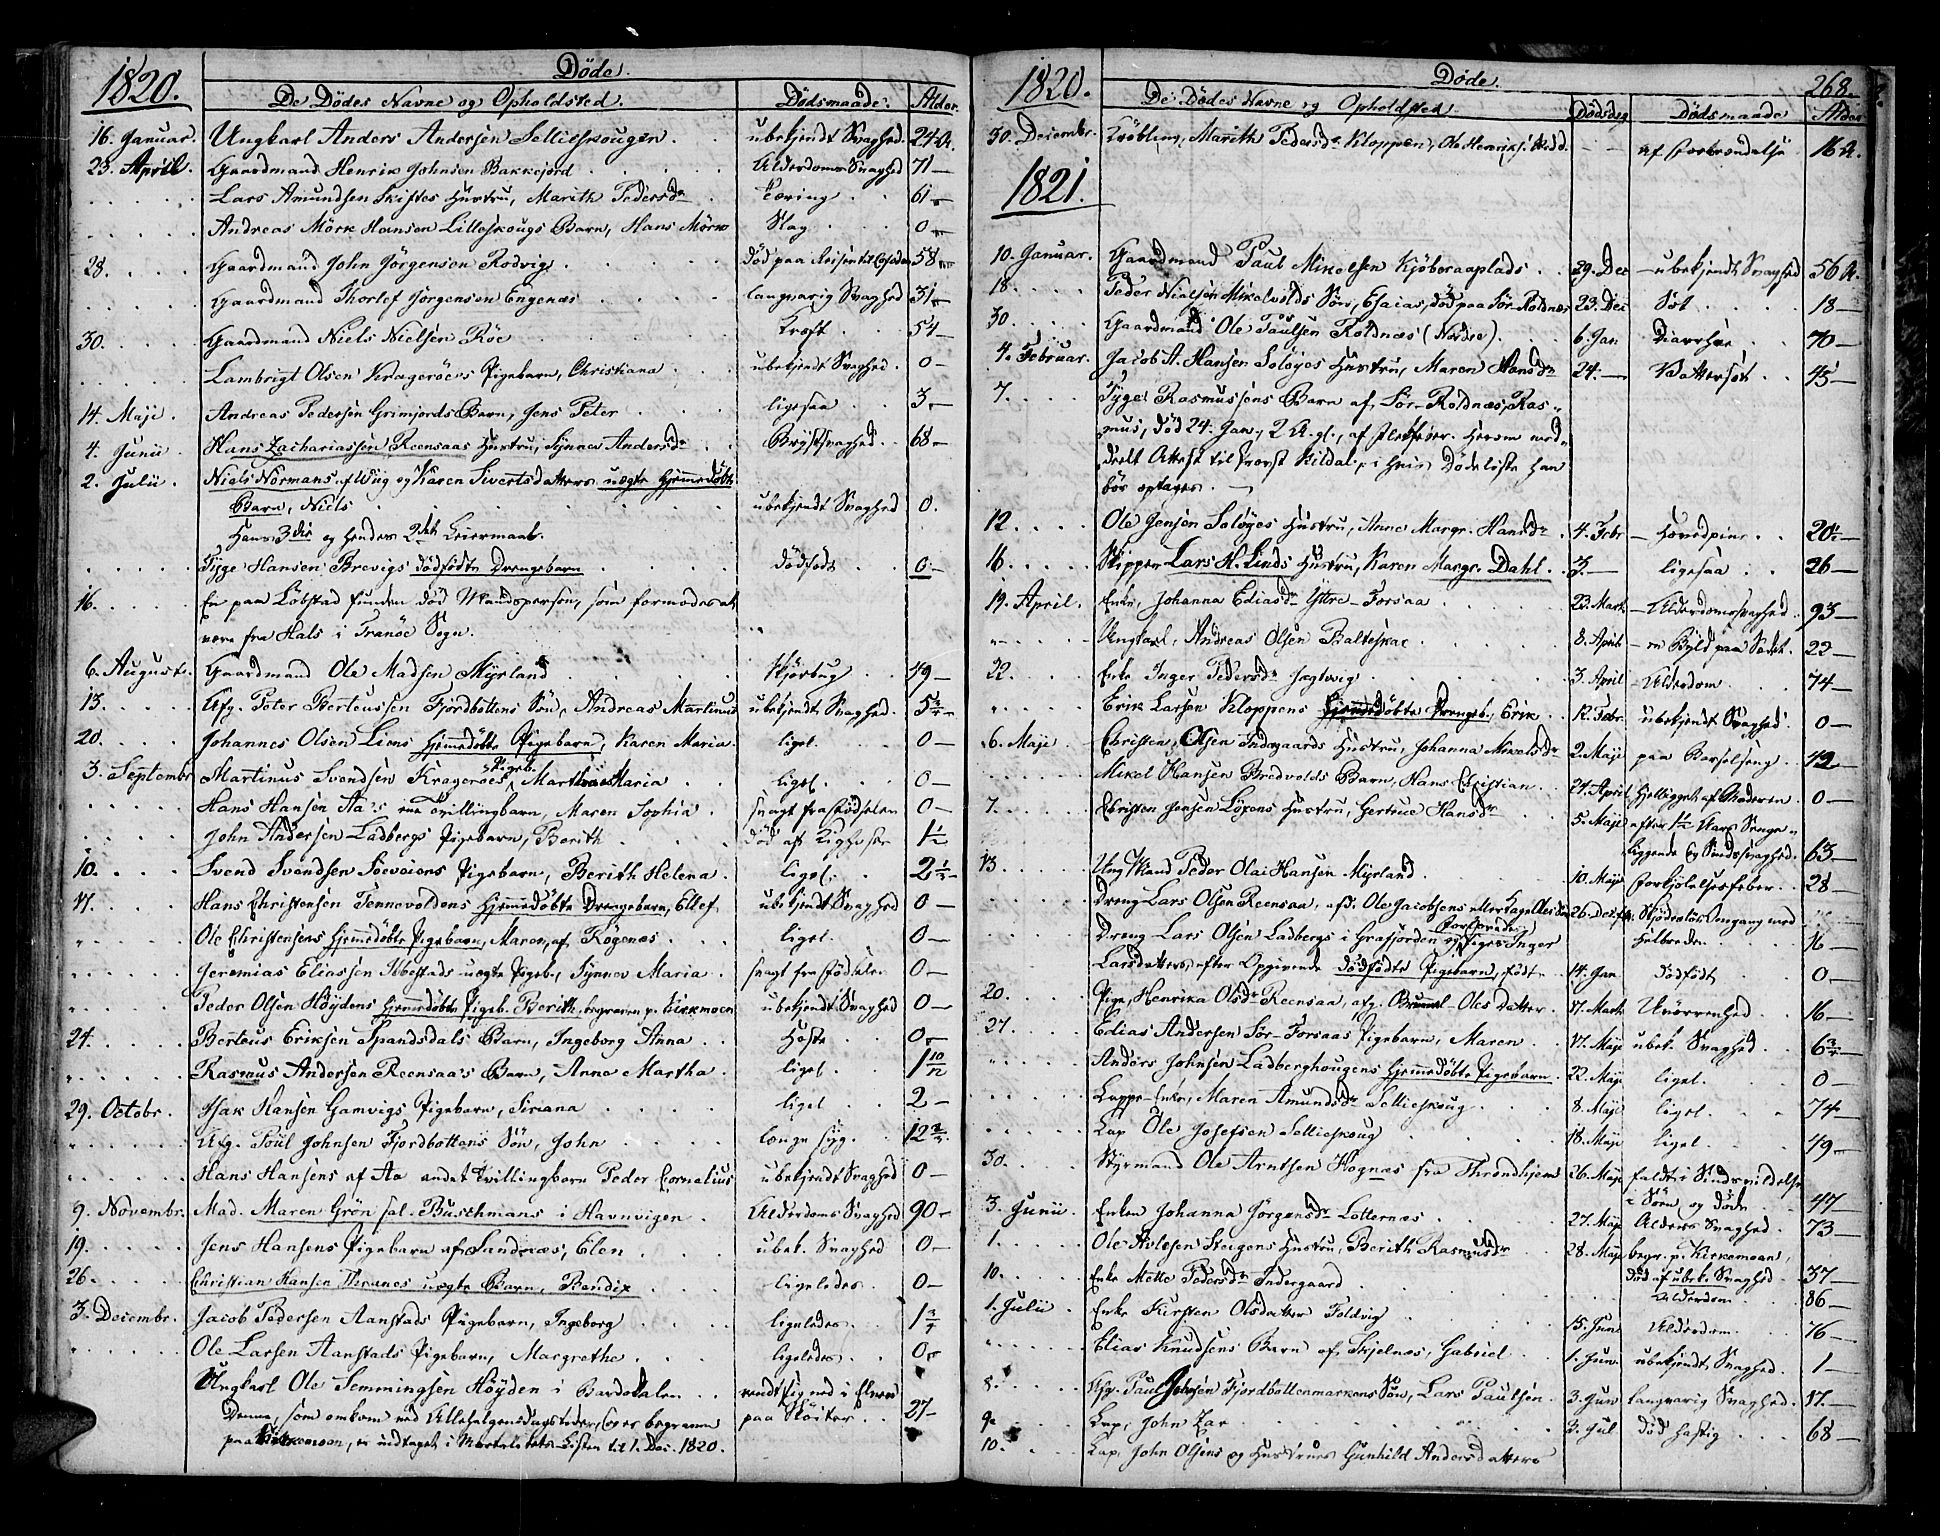 1820.
Döde.
De Dödes Navne og Opholdsted.
Dödsmaade.
Alder.
16. Januar. Ungkarl Anders Andersen Sellieskougen. ubekjendt Svaghed. 24 A.
23. April. Gaardmand Henrik Johnsen Bakkejord Alderdoms Svaghed 71 —
Lars Amundsen Skiftes Hustru, Marith Pedersdr Tæring 61 —
Andreas Mörk Hansen Lilleskougs Barn, Hans Mörk Slag 0 —
28. Gaardmand John Jörgensen Rodvig död paa Reisen til 58 —
Gaardmand Thorlef Jörgensen Engenæs langvarig Svaghed 31 —
30. Gaardmand Niels Nielsen Röe Kræft 54 —
Lambrigt Olsen Krageröes Pigebarn, Christiana ubekjendt Svaghed. 0 —
14. Maji. Andreas Pedersen Grimjords Barn, Jens Peter ligesaa 3 —
4. Junii. Hans Zachariassen Reensaas Hustru, Synnev Andersdr Brystsvaghed 68 —
2. Julii. Niels Normans af Wiig og Karen Sivertsdatters uægte hjemmedöbte
Barn, Niels ubekjendt Svaghed 0.
Hans 3die og hendes 2det Leiermaal.
Tyge Hansen Brevigs dödfödte Drengebarn dödfödt 0 —
16. En paa Löbstad funden död Mandsperson, som formodes at
være fra Hals i Tranöe Sogn.
6. August. Gaardmand Ole Madsen Myrland Skjörbug 49 —
13. Afg. Peter Berteussen Fjordbottens Sön, Andreas Martinus ubekjendt Svaghed. 5 3/4 —
20. Johannes Olsen Liens hjemmedöbte Pigebarn, Karen Maria. ligel. 0 —
3. Septembr. Martinus Svendsen Krageröes Pigeb. Martha Maria ligel. 0 —
Hans Hansen Aa's ene Tvillingbarn, Maren Sophia svagt fra Födselen 0 —
John Andersen Ladbergs Pigebarn, Berith död af Kighoste 1 1/2
10. Svend Svendsen Soeveiens Pigebarn, Berith Helena. ligel. 2 1/2 —
17. Hans Christensen Tennevoldens hjemmedöbte Drengebarn, Ellef. ubekjendt Svaghed 0 —
Ole Christensens hjemmedöbte Pigebarn, Maren, af Rögenæs. ligel. 0 —
Jeremias Eliassen Ibbestads uægte Pigeb., Synnev Maria svagt fra Födselen 0 —
Peder Olsen Höydens hjemmedöbte Pigeb. Berith, begraven p. Kirkmoen ubekjendt Svaghed 0 —
24. Berteus Eriksen Spandsdals Barn, Ingeborg Anna Hoste 0 —
Rasmus Andersen Reensaa's Barn, Anne Martha. ligel. 1 10/12
29. Octobr. Isak Hansen Gamvigs Pigebarn, Siriana ligel 2 —
Afg. Poul Johnsen Fjordbottens Sön, John længe syg. 12 3/4
Hans Hansens af Aa andet Tvillingbarn Peder Cornelius ubekjendt Svaghed 0 —
9. Novembr. Mad. Maren Grön sal. Buschmans i Havnvigen. Alderdoms Svaghed 90 —
19. Jens Hansens Pigebarn af Sandnæs, Elen ubek. Svaghed 0 —
26. Christian Hansen Thranes uægte Barn, Bendix ligeledes 0 —
3. Decembr. Jacob Pedersen Aanstads Pigebarn, Ingeborg ligeledes 1 3/4
Ole Larsen Aanstads Pigebarn, Margrethe ligeledes 0 —
Ungkarl Ole Semmingsen Höyden i Bardodalen rendt sig ned i Elven
Denne, som omkom ved Allehelgensdagstider, og er begraven paa Sköiter. 27 —
paa Kirkemoen, er indtaget i Mortalitets-Listen til 1. Dec. 1820.
1820.
Döde.
268.
De Dödes Navne og Opholdsted.
Dödsdag
Dödsmaade
Alder
30. Decembr. Kröbling, Marith Pedersdr Kloppen, af Forbrændelse 16 A.
1821.
10. Januar. Gaardmand Paul Mikelsen Kjöberaaplads 29. Dec ubekjendt Svaghed 56 A.
18. Peder Nielsen Mikelvolds Sön, Esaias, död paa Sör-Roldnæs 23. Dec Sot 18 —
30. Gaardmand Ole Paulsen Roldnæs (Nordre). 6. Jan Diarrhee 70 —
4. Februar. Jacob A. Hansen Solöyes Hustru, Maren Hansdr 24. — Vattersot 45 —
7. Tyge Rasmussens Barn af Sör-Roldnæs, Ras-
mus, död 24. Jan., 2 A. gl., af Herom med-
deelt Attest til Provst Kildal, i hvis Dödeliste han
bör optages.
12. Ole Jensen Solöyes Hustru, Anne Margr. Hansdr 4. Febr Hovedpine 20 1/2 —
16. Skipper Lars H. Linds Hustru, Karen Margr. Dahl. 3. — ligesaa 26 —
19. April. Enke, Johanna Eliasdr Yttre-Forsaa 23. Mart Alderdomssvaghed 93 —
Ungkarl, Andreas Olsen Balteskar 8. April en Byld paa Sædet. 22 —
22. Enke Inger Pedersdr Jægtvig 3. April Alderdom 74 —
Erik Larsen Kloppens hjemmedöbte Drengeb., Erik 12. Febr. ubekjendt Svaghed 0 —
6. Maji Christen Olsen Indregaards Hustru, Johanna Mikelsdr 2. Maji paa Barselseng. 42 —
Mikel Hansen Bredvolds Barn, Hans Christian 24. April ihjelligget af Moderen 0 —
7. Christen Jensen Löxens Hustru, Gertrue Hansdr 5. Maji efter 1 1/2 Aars Senge-
liggende og Sindssvaghed. 63 —
13. Ung Mand Peder Olai Hansen Myrland 10. Maji Forkjölelsesfeber 28 —
Dreng Lars Olsen Reensaa, afd. Ole Jacobsens 26. Dec. Omgang med
Dreng Lars Olsen Ladbergs i Grafjorden og Piges Inger 16 —
Larsdatters efter Opgivende dödfödte Pigebarn, födt 14. Jan dödfödt 0 —
20. Pige, Henrika Olsdr Reensaa, afg. Olesdatter 17. Marts 16 —
27. Elias Andersen Sör-Forsaas Pigebarn, Maren 17. Maji ubek. Svaghed 6 3/4 —
Anders Johnsen Ladberghougens hjemmedöbte Pigebarn. 22. Maji ligel. 0 —
Lappe-Enke, Maren Amundsdr Sellieskoug 8. Maji ligel. 74 —
Lap Ole Josefsen Sellieskoug 18. Maji ligel. 49 —
30. Styrmand Ole Arntsen Hognæs fra Throndhjem 26. Maji faldt i Sindsvildelse
i Söen og döde. 47 —
3. Junii. Enken Johanna Jörgensdr Lotternæs 27. Maji Alders Svaghed 73 —
1. Ole Avlesen Steigens Hustru, Berith Rasmusdr 28. Maji begr. p. Kirkemoen,
död af ubek. Svaghed. 37 —
10. Enke Mette Pedersdr Indergaard Alderdom 86 —
1. Julii Enke Kirsten Olsdatter Foldvig 15. Jun Alderdom 76 —
Elias Knudsens Barn af Skjelnæs, Gabriel 1. Jun. ubekjendt Svaghed. 1 —
8. Afg. Paul Johnsen Fjordbottenmarkens Sön, Lars Paulsen. 3. Jun langvarig Svaghed. 17. —
9. Lap, John Zar 3. Jul död hastig 68 —
10. Lap, John Olsens og Hustrues Gunhild Andersdatters